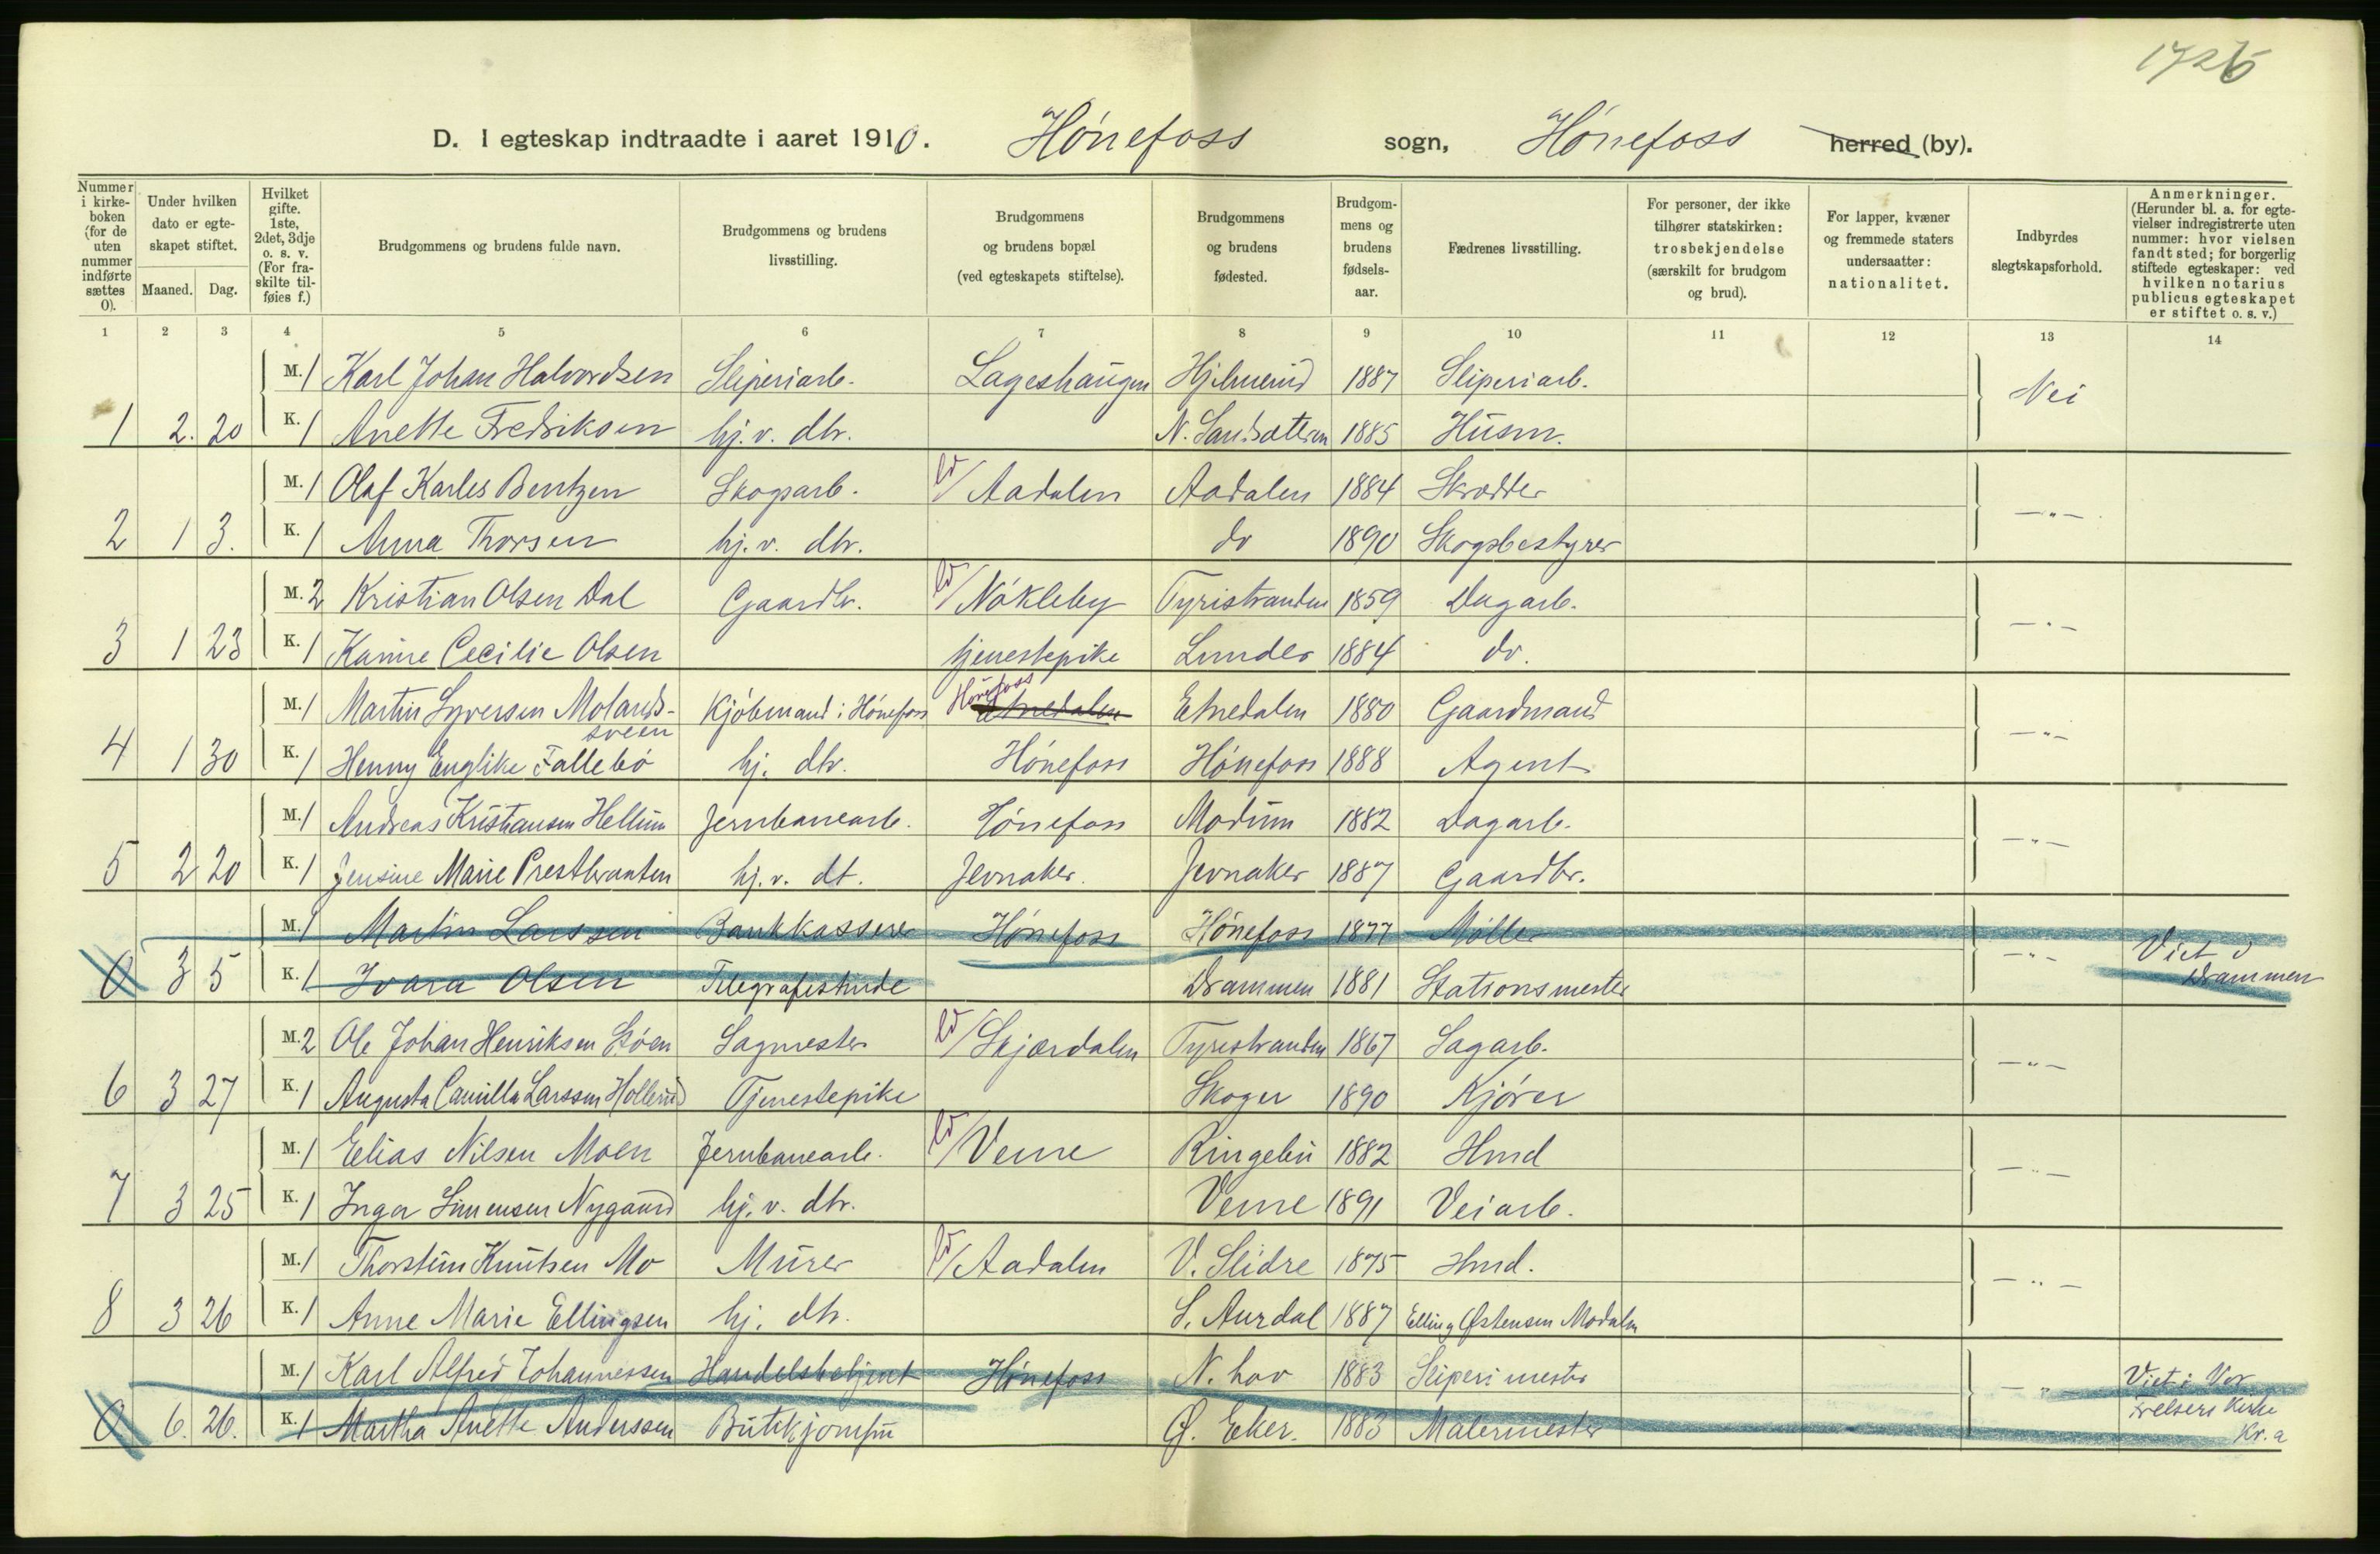 1726
D. I egteskap indtraadte i aaret 1910. Hönefoss sogn, Hönefoss herred (by).
Nummer i kirke-boken (for de uten nummer indførte sættes 0).
Under hvilken dato er egte-skapet stiftet.
Maaned. Dag.
Hvilket gifte. 1ste, 2det, 3dje o. s. v. (For fra-skilte til-føies f.)
Brudgommens og brudens fulde navn.
Brudgommens og brudens livsstilling.
Brudgommens og brudens bopæl (ved egteskapets stiftelse).
Brudgommens og brudens fødested.
Brudgom-mens og brudens fødsels-aar.
Fædrenes livsstilling.
For personer, der ikke tilhører statskirken: trosbekjendelse (særskilt for brudgom og brud).
For lapper, kvæner og fremmede staters undersaatter: nationalitet.
Indbyrdes slegtskapsforhold.
Anmerkninger. (Herunder bl. a. for egte-vielser indregistrerte uten nummer: hvor vielsen fandt sted; for borgerlig stiftede egteskaper: ved hvilken notarius publicus egteskapet er stiftet o. s. v.)
1 2 3 4 5 6 7 8 9 10 11 12 13 14
M. 1 Karl Johan Halvordsen Sliperiarb. Lageshaugen Hjelmerud 1887 Sliperiarb. Nei
1 2. 20 K. 1 Anette Fredriksen hj. v. dtr. N. Sandsætteren 1885 Husm.
M. 1 Olaf Karles Bentzen Skogsarb. Aadalen Aadalen 1884 Skrædder —"—
2 1 3. K. 1 Anna Thorsen hj. v. dtr. do 1890 Skogsbestyrer
M. 2 Kristian Olsen Dal Gaardbr. Nökleby Tyristranden 1859 Dagarb. —"—
3 1 23 K. 1 Karine Cecilie Olsen tjenestepike Lunder 1884 do.
M. 1 Martin Syversen Molands-sveen Kjöbmand i Hönefoss Hönefoss Etnedalen Etnedalen 1880 Gaardmand —"—
4 1 30 K. 1 Henny Englike Fallebö hj. dtr. Hönefoss Hönefoss 1888 Agent
M. 1 Andreas Kristiansen Hellum Jernbanearb. Hönefoss Modum 1882 Dagarb. —"—
5 2 20 K. 1 Jensine Marie Prestbraaten hj. v. dt. Jevnaker. Jevnaker 1887 Gaardbr.
M. 1 Martin Larssen Bankkasserer Hönefoss Hönefoss 1877 Möller —"— Viet i Drammen
0 3 5 K. 1 Ivara Olsen Telegrafistinde Drammen 1881 Stationsmester
M. 2 Ole Johan Henriksen Stöen Sagmester Skjærdalen Tyristranden 1867 Sagarb. —"—
6 3 27 K. 1 Augusta Camilla Larssen Hollerud Tjenestepike Skoger 1890 Kjörer
M. 1 Elias Nilsen Moen Jernbanearb. Veme Ringebu 1882 Hmd —"—
7 3 25 K. 1 Inga Simensen Nygaard hj. v. dtr. Veme 1891 Veiarb.
M. 1 Thorstein Knutsen Mo Murer Aadalen V. Slidre 1875 Hmd. —"—
8 3 26 K. 1 Anne Marie Ellingsen hj. dtr. S. Aurdal 1887 Elling Østensen Modalen
M. 1 Karl Alfred Johannessen Handelsbetjent Hönefoss N. hov 1883 Sliperimester —"— Viet i Vor Frelsers Kirke Kr.a
0 6. 26. K. 1 Martha Anette Anderssen Butikjomfru Ø. Eker. 1883 Malermester